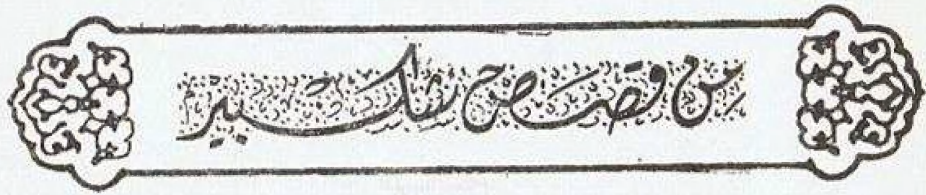 من قصص شكسبير